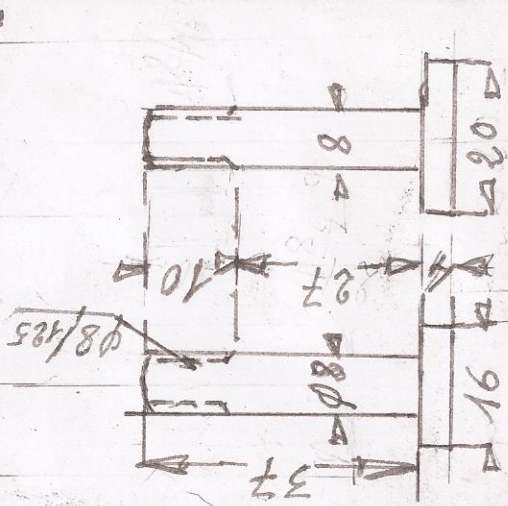 8
20
10
27
4
φ8/125
φ8
16
37